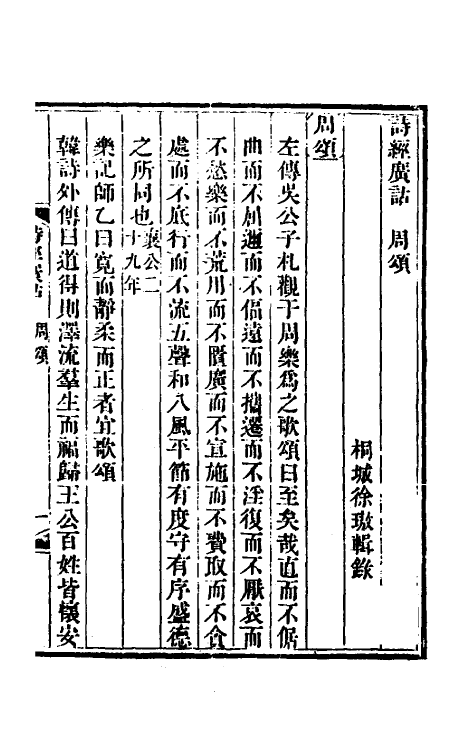 詩經廣詁　周頌
桐城徐璈輯錄
周頌
左傳吳公子札觀于周樂爲之歌頌曰至矣哉直而不倨
曲而不屈邇而不偪遠而不攜遷而不淫復而不厭哀而
不愁樂而不荒用而不匱廣而不宣施而不費取而不貪
處而不底行而不流五聲和八風平節有度守有序盛德
之所同也襄公二十九年
樂記師乙曰寬而靜柔而正者宜歌頌
韓詩外傳曰道得則澤流羣生而福歸王公百姓皆懷安
詩經廣詁　周頌　一